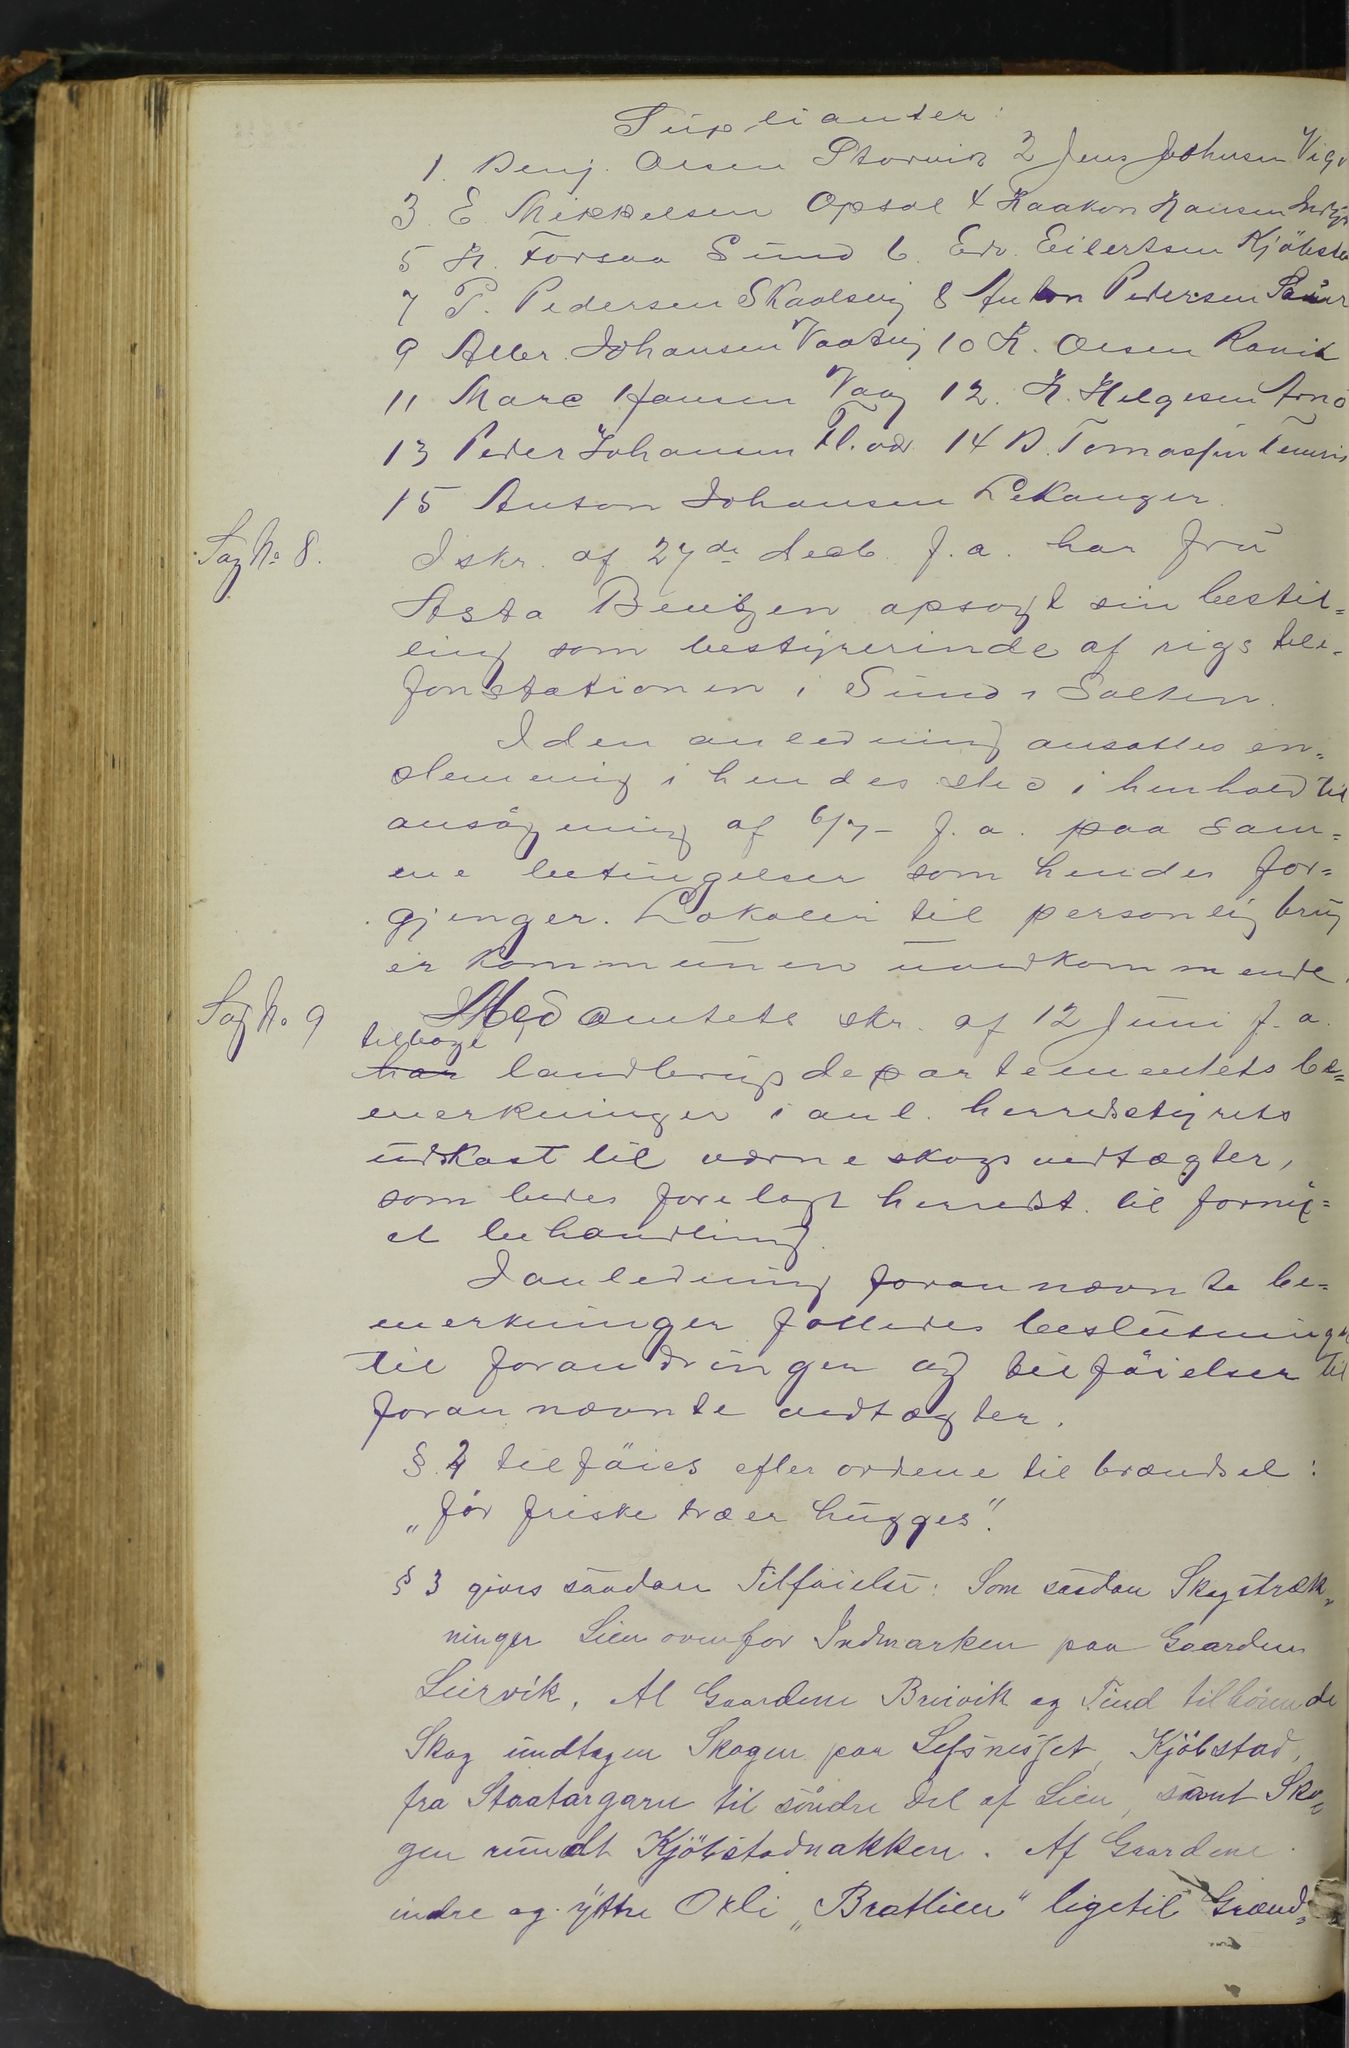 Suplianter:
1. Benj. Olsen Storvik 2 Jens Johnsen Vigd
3 E. Mikkelsen Opsal 4 Haakon Hansen
5 H. Forsaa Sund 6. Edv. Eilertsen Kjöbsta
7 P. Pedersen Skaalsvig 8 Anton Pedersen
9 Alber. Johansen Vaatvig 10 K. Olsen Ravik
11 Marc Hansen Vaag 12. K. Helgesen Arnö
13 Peder Johansen 14 B. Tomassen
15 Anton Johansen Lekanger.
Sag No 8.
I skr. af 27de decb. f.a. har fru
Asta Bentzen opsagt sin bestil=
ling som bestyrerinde af rigstele=
fonstationen i Sund i Salten.
I den anledning ansattes en=
stemmig i hendes sted i henhold til
ansögning af 6/7- f.a. paa sam=
me betingelser som hendes for=
gjenger. Lokaler til personlig brug
er kommunen uvedkommende.
Sag No 9
Med amtets skr. af 12 Juni f.a.
tilbage
har landbrugsdepartementets be=
merkninger i anl. herredstyrets
udkast til værneskogsvedtægter,
som bedes forelagt herredst. til forny=
et behandling.
I anledning forannævnte be=
merkninger fattedes beslutninger
til forandringer og tilföielser til
forannævnte vedtægter.
§ 2 tilföies efter ordene til brændsel:
„för friske træer hugges".
§ 3 gives saadan Tilföielse: Som saadan Skogstræk=
ninger Lien ovenfor Indmarken paa Gaarden
Leirvik. Al Gaardene Breivik og Tind tilhörende
Skog undtagen Skogen paa Lefsnesset, Kjöbstad,
fra Staatargaru til söndre Del af Lien, samt Sko=
gen rundt Kjöbstadnakken. Af Gaardene
indre og ÿttre Oxli „Bratlien" ligetil Grænd=